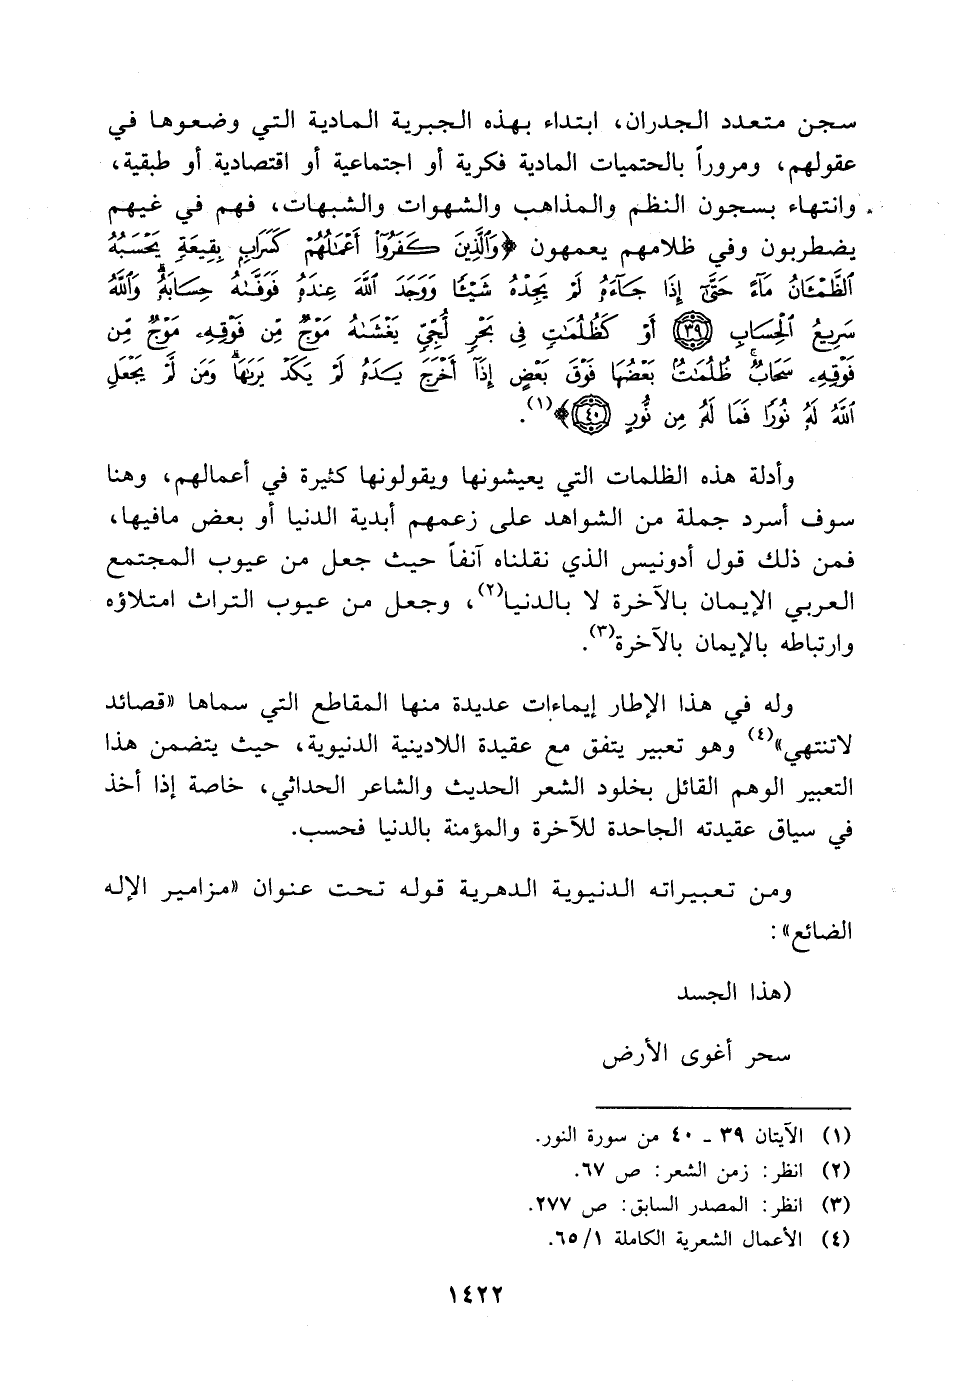 سجن متعدد الجدران، ابتداء بهذه الجبرية المادية التي وضعوها في
عقولهم، ومروراً بالحتميات المادية فكرية أو اجتماعية أو اقتصادية أو طبقية،
وانتهاء بسجون النظم والمذاهب والشهوات والشبهات، فهم في غيهم
يضطربون وفي ظلامهم يعمهون ﴿وَٱلَّذِينَ كَفَرُوٓا۟ أَعْمَٰلُهُمْ كَسَرَابٍۭ بِقِيعَةٍ يَحْسَبُهُ
ٱلظَّمْـَٔانُ مَآءً حَتَّىٰٓ إِذَا جَآءَهُۥ لَمْ يَجِدْهُ شَيْـًٔا وَوَجَدَ ٱللَّهَ عِندَهُۥ فَوَفَّىٰهُ حِسَابَهُۥ ۗ وَٱللَّهُ
سَرِيعُ ٱلْحِسَابِ ﴿٣٩﴾ أَوْ كَظُلُمَٰتٍ فِى بَحْرٍ لُّجِّىٍّ يَغْشَىٰهُ مَوْجٌ مِّن فَوْقِهِۦ مَوْجٌ مِّن
فَوْقِهِۦ سَحَابٌ ۚ ظُلُمَٰتٌۢ بَعْضُهَا فَوْقَ بَعْضٍ إِذَآ أَخْرَجَ يَدَهُۥ لَمْ يَكَدْ يَرَىٰهَا ۗ وَمَن لَّمْ يَجْعَلِ
ٱللَّهُ لَهُۥ نُورًا فَمَا لَهُۥ مِن نُّورٍ ﴿٤٠﴾﴾(١).
وأدلة هذه الظلمات التي يعيشونها ويقولونها كثيرة في أعمالهم، وهنا
سوف أسرد جملة من الشواهد على زعمهم أبدية الدنيا أو بعض مافيها،
فمن ذلك قول أدونيس الذي نقلناه آنفاً حيث جعل من عيوب المجتمع
العربي الإيمان بالآخرة لا بالدنيا(٢)، وجعل من عيوب التراث امتلاؤه
وارتباطه بالإيمان بالآخرة(٣).
وله في هذا الإطار إيماءات عديدة منها المقاطع التي سماها «قصائد
لاتنتهي»(٤) وهو تعبير يتفق مع عقيدة اللادينية الدنيوية، حيث يتضمن هذا
التعبير الوهم القائل بخلود الشعر الحديث والشاعر الحداثي، خاصة إذا أخذ
في سياق عقيدته الجاحدة للآخرة والمؤمنة بالدنيا فحسب.
ومن تعبيراته الدنيوية الدهرية قوله تحت عنوان «مزامير الإله
الضائع»:
(هذا الجسد
سحر أغوى الأرض
(١) الآيتان ٣٩ ـ ٤٠ من سورة النور.
(٢) انظر: زمن الشعر: ص ٦٧.
(٣) انظر: المصدر السابق: ص ٢٧٧.
(٤) الأعمال الشعرية الكاملة ٦٥/١.
١٤٢٢